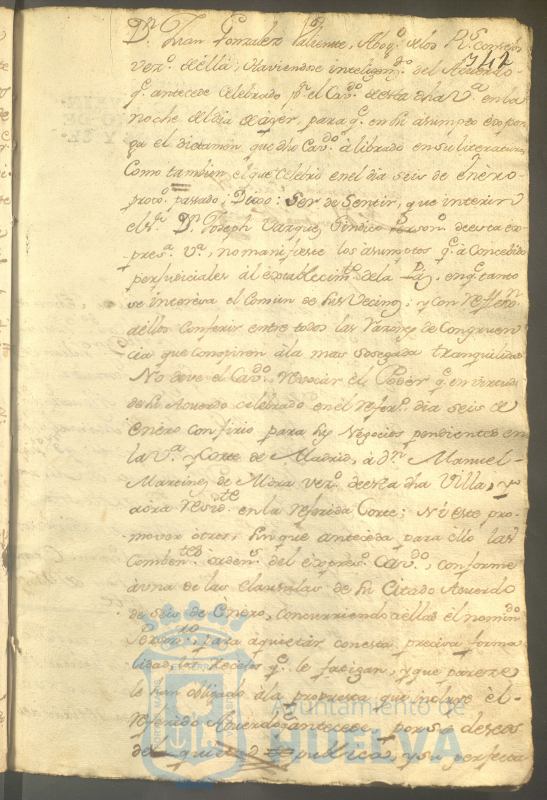 Dn. Juan Gonzalez Valiente, Abogo. de los Rs. Consejos
242
vezo. de ella, Haviendose intelignzdo. del Acuerdo
qe. antecede Celebrado pr. el Cavdo. de esta dha Va. en la
noche del dia de ayer, para qe. en su asumpto expon
ga el dictamen que dho Cavdo. á librado en su literatura,
Como tambien el que Celebró en el dia seis de Enero
proxo. pasado; Dixo: Ser de Sentir, que interin
el sr. Dn. Joseph Vazquez Sindico Person. de esta ex
presa. Va., no manifieste los asumptos qe. á Concedido
perjudiciales al establecimto. de la Paz, en qe. tanto
se interesa el Comun de sus Vecinos; y con
de ellos Conferir entre todos las Razones de Congruen
cia que Conspiren á la mas sosegada tranquilidad
No deve el Cavdo. revocar el Poder qe. en virtud
de su Acuerdo celebrado en el referdo. dia seis de
Enero confirió para sus Negocios pendientes en
la Va. y Corte de Madrid, á dn. Manuel
Martinez de Mora vezo. de esta dha Villa, y
aora residte. en la referida Corte: Ni este pro
mover otros, sin que anteceda para ello las
Combentes ordenes. del expreso. Cavdo., conforme
á una de las Clausulas de su Citado Acuerdo
de seis de Enero, concurriendo á ellas el nomindo.
Persono., para aquietar con esta precisa forma
lidad, los recelos qe. le fatigan, y que parece
le han obligado á la propuesta que incluye el
referido Acuerdo qe. antecede, por sus deseos
de la quietud publica, y su perfecta
Ayuntamiento de
HUELVA